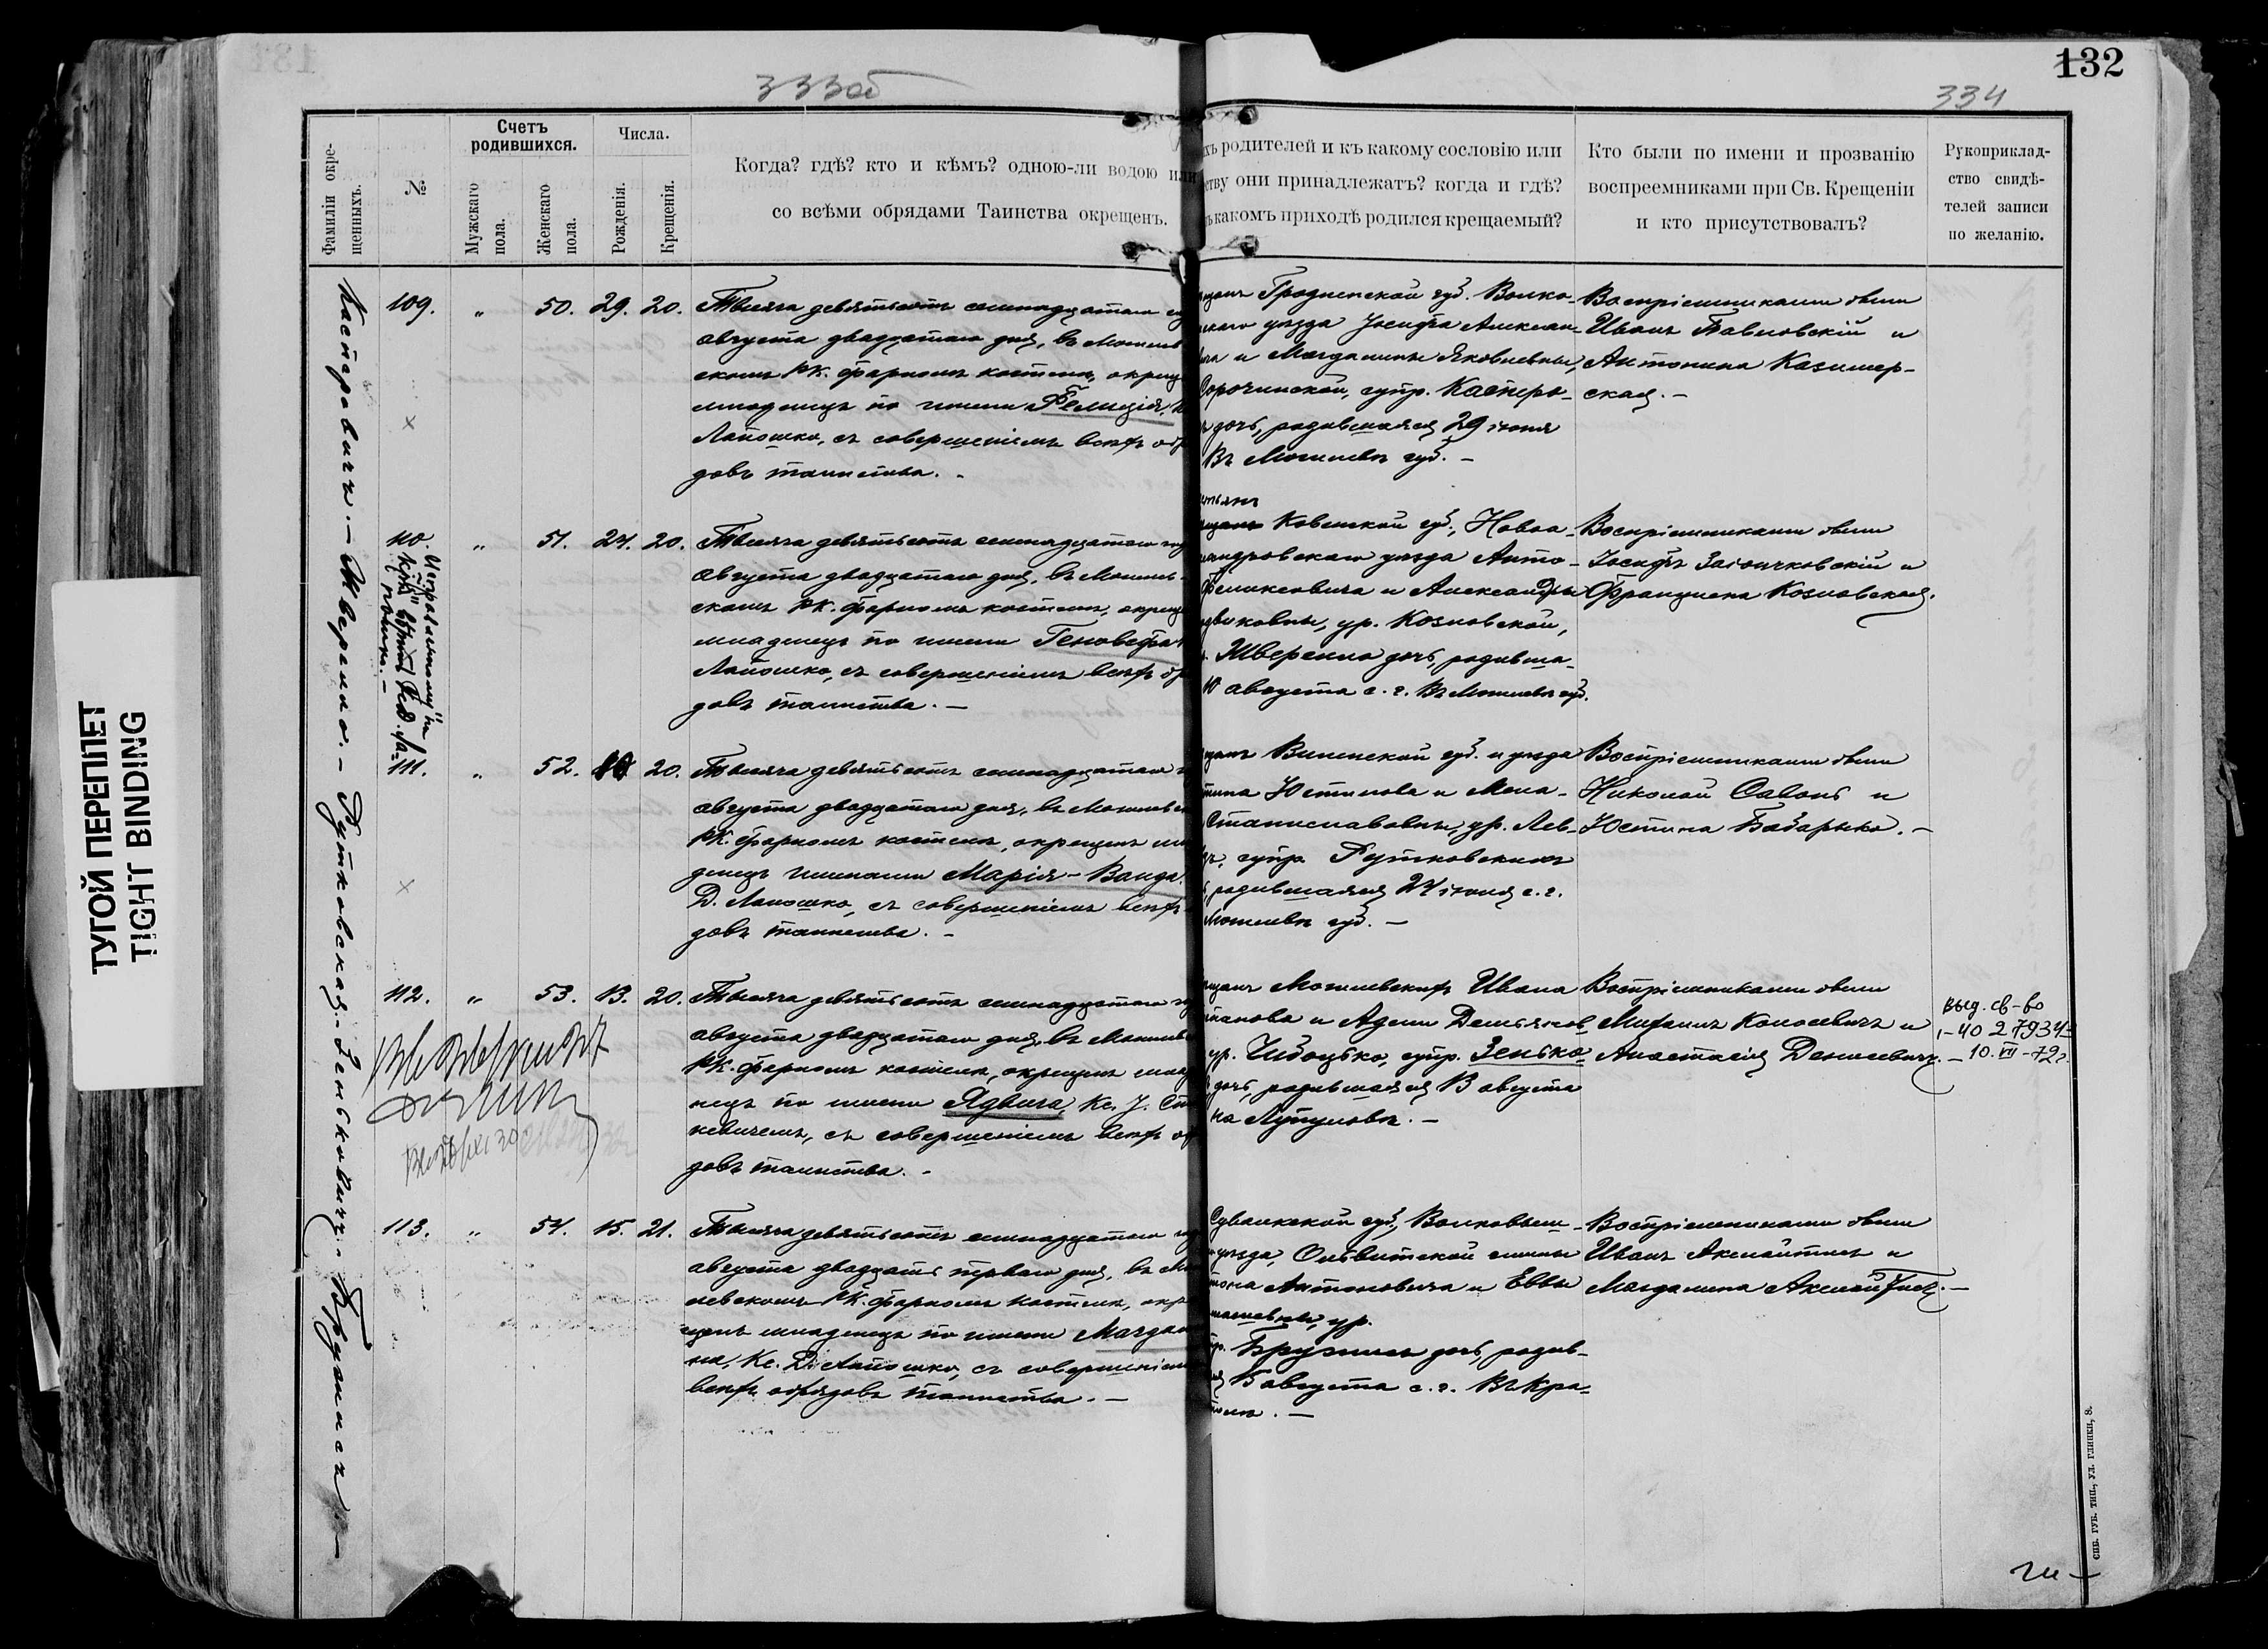 132
333об
334
ТУГОЙ ПЕРЕПЛЕТ
TIGHT BINDING
Фамиліи окре-
щенныхъ.
№
Счетъ
родившихся.
Мужскаго
пола.
Женскаго
пола.
Числа.
Рожденія.
Крещенія.
Когда? гдѣ? кто и кѣмъ? одною-ли водою или
со всѣми обрядами Таинства окрещенъ.
хъ родителей и къ какому сословію или
ству они принадлежатъ? когда и гдѣ?
ъ какомъ приходѣ родился крещаемый?
Кто были по имени и прозванію
воспреемниками при Св. Крещеніи
и кто присутствовалъ?
Рукоприклад-
ство свидѣ-
телей записи
по желанію.
Каспровичъ. — Жверелло. — Рутковская. Зеньковичъ. Бружисъ —
109. „ 50. 29. 20.
Тысяча девятьсотъ семнадцатаго го
августа двадцатаго дня, въ Могилев
скомъ РК. фарномъ костелѣ, окрещ
младенецъ по имени Фелиція,
Лапошко, съ совершеніемъ всѣхъ об
довъ таинства. -
щанъ Гродненской губ. Волко-
скаго уѣзда Іосифа Алексан-
вича и Магдалины Яковлевны,
Сорочинской, супр. Каспро-
ъ дочь, родившаяся 29 іюня
Въ Могилевѣ губ. —
Воспріемниками были
Иванъ Павловскій и
Антонина Казимер-
ская. —
110. „ 51. 24. 20.
Тысяча девятьсотъ семнадцатаго го
августа двадцатаго дня, въ Могилев-
скомъ РК. фарномъ костелѣ, окрещ
младенецъ по имени Геновефа
Лапошко, съ совершеніемъ всѣхъ об
довъ таинства. —
Ковенской губ., Новоа-
андровскаго уѣзда Анто-
Феликсовича и Александры
двиковны, ур. Козловской,
Жверелло дочь, родивша-
10 августа с. г. Въ Могилевѣ губ.
Воспріемниками были
Іосифъ Заіончковскій и
Францишка Козловская.
111. „ 52. 20.
Тысяча девятьсотъ семнадцатаго
августа двадцатаго дня, въ Могилевск
РК. фарномъ костелѣ, окрещенъ мл
денецъ именами Марія-Ванда,
Д. Лапошко, съ совершеніемъ всѣхъ
довъ таинства. -
щанъ Виленской губ. и уѣзда
тина Юстинова и Меча-
Станиславовны, ур. Лев-
ъ, супр. Рутковскихъ
родившаяся 24 іюля с. г.
Могилевѣ губ. —
Воспріемниками были
Николай Савонь и
Юстина Бабарыко. —
112. „ 53. 13. 20.
Тысяча девятьсотъ семнадцатаго го
августа двадцатаго дня, въ Могилев
РК. фарномъ костелѣ, окрещенъ мла
нецъ по имени Ядвига, Кс. J. Ст
кевичемъ, съ совершеніемъ всѣхъ об
довъ таинства. -
щанъ Могилевскихъ Ивана
панова и Адели Демьянов
ур. Чибоцько, супр. Зенько
дочь, родившаяся 13 августа
на Лупуловѣ. —
Воспріемниками были
Михаилъ Конасевичъ и
Анастасія Денисевичъ. —
выд. св-во
1-ЧО 279341
10. VII - 72г.
113. „ 54. 15. 21.
Тысяча девятьсотъ семнадцатаго го
августа двадцать перваго дня, въ Мо
левскомъ РК. фарномъ костелѣ, окр
щенъ младенецъ по имени Магдал
на, Кс. Д. Лапошко, съ совершеніем
всѣхъ обрядовъ таинства. —
Сувалкской губ., Волковыш-
уѣзда, Ольвитской гмины
тона Антоновича и Еввы
ур.
Бружисъ дочь, родив-
15 августа с. г. Въ Кра-
Воспріемниками были
Иванъ Акслайтисъ и
Магдалина Акслайтисъ. —
СПБ. ГУБ. ТИП., УЛ. ГЛИНКИ, 8.